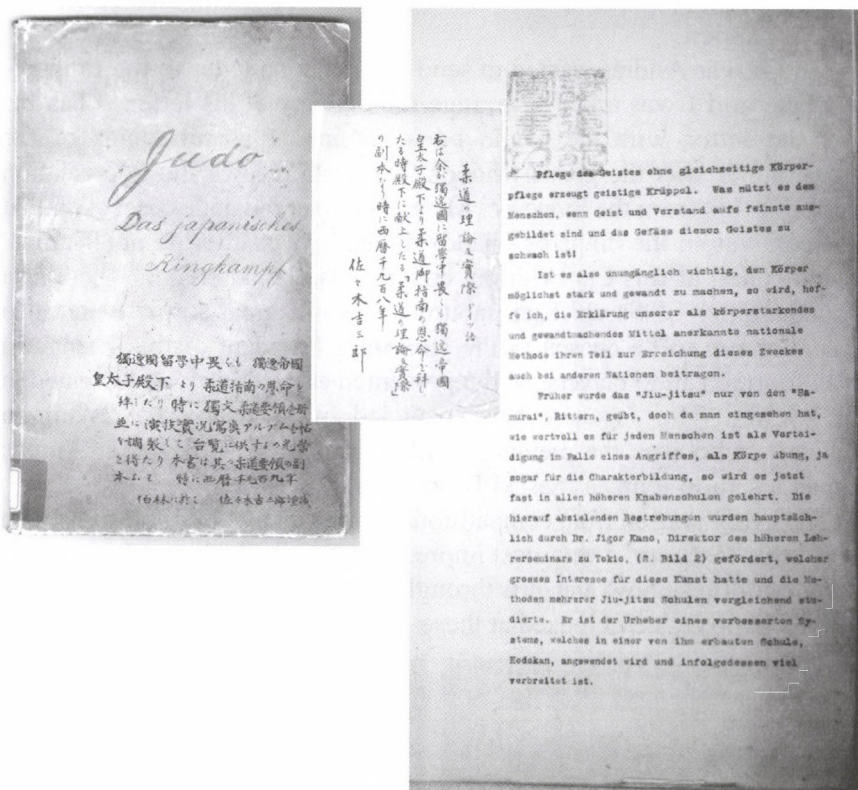 Judo
Das japanisches
Ringkampf
獨逸國留學中畏くも 獨逸帝國
皇太子殿下より柔道指南の恩命を
拝したり時に獨文柔道要領壱冊
並に演技實況寫真アルバム壱帖
を調製して台覧に供するの光榮
を得たり本書は其の柔道要領の副
本なり 時に西暦千九百九年
伯林に於て 佐々木吉三郎
柔道の理論及實際 ドイツ語
右は余が獨逸國に留學中畏くも獨逸帝國
皇太子殿下より柔道御指南の恩命を拝し
たる時殿下に献上したる「柔道の理論及實際」
の副本なり時に西暦千九百八年
佐々木吉三郎
Pflege des Geistes ohne gleichzeitige Körper-
pflege erzeugt geistige Krüppel. Was nützt es dem
Menschen, wenn Geist und Verstand aufs feinste aus-
gebildet sind und das Gefäss dieses Geistes zu
schwach ist!
Ist es also unumgänglich wichtig, den Körper
möglichst stark und gewandt zu machen, so wird, hof-
fe ich, die Erklärung unserer als körperstarkendes
und gewandtmachendes Mittel anerkannte nationale
Methode ihren Teil zur Erreichung dieses Zweckes
auch bei anderen Nationen beitragen.
Früher wurde das "Jiu-jitsu" nur von den "Sa-
murai", Rittern, geübt, doch da man eingesehen hat,
wie wertvoll es für jeden Menschen ist als Vertei-
digung im Falle eines Angriffes, als Körpe übung, ja
sogar für die Charakterbildung, so wird es jetzt
fast in allen höheren Knabenschulen gelehrt. Die
hierauf abzielenden Bestrebungen wurden hauptsäch-
lich durch Dr. Jigor Kano, Direktor des höheren Leh-
rerseminars zu Tokio, (S. Bild 2) gefördert, welcher
grosses Interesse für diese Kunst hatte und die Me-
thoden mehrerer Jiu-jitsu Schulen vergleichend stu-
dierte. Er ist der Urheber eines verbesserten Sy-
stems, welches in einer von ihm erbauten Schule,
Kodokan, angewendet wird und infolgedessen viel
verbreitet ist.